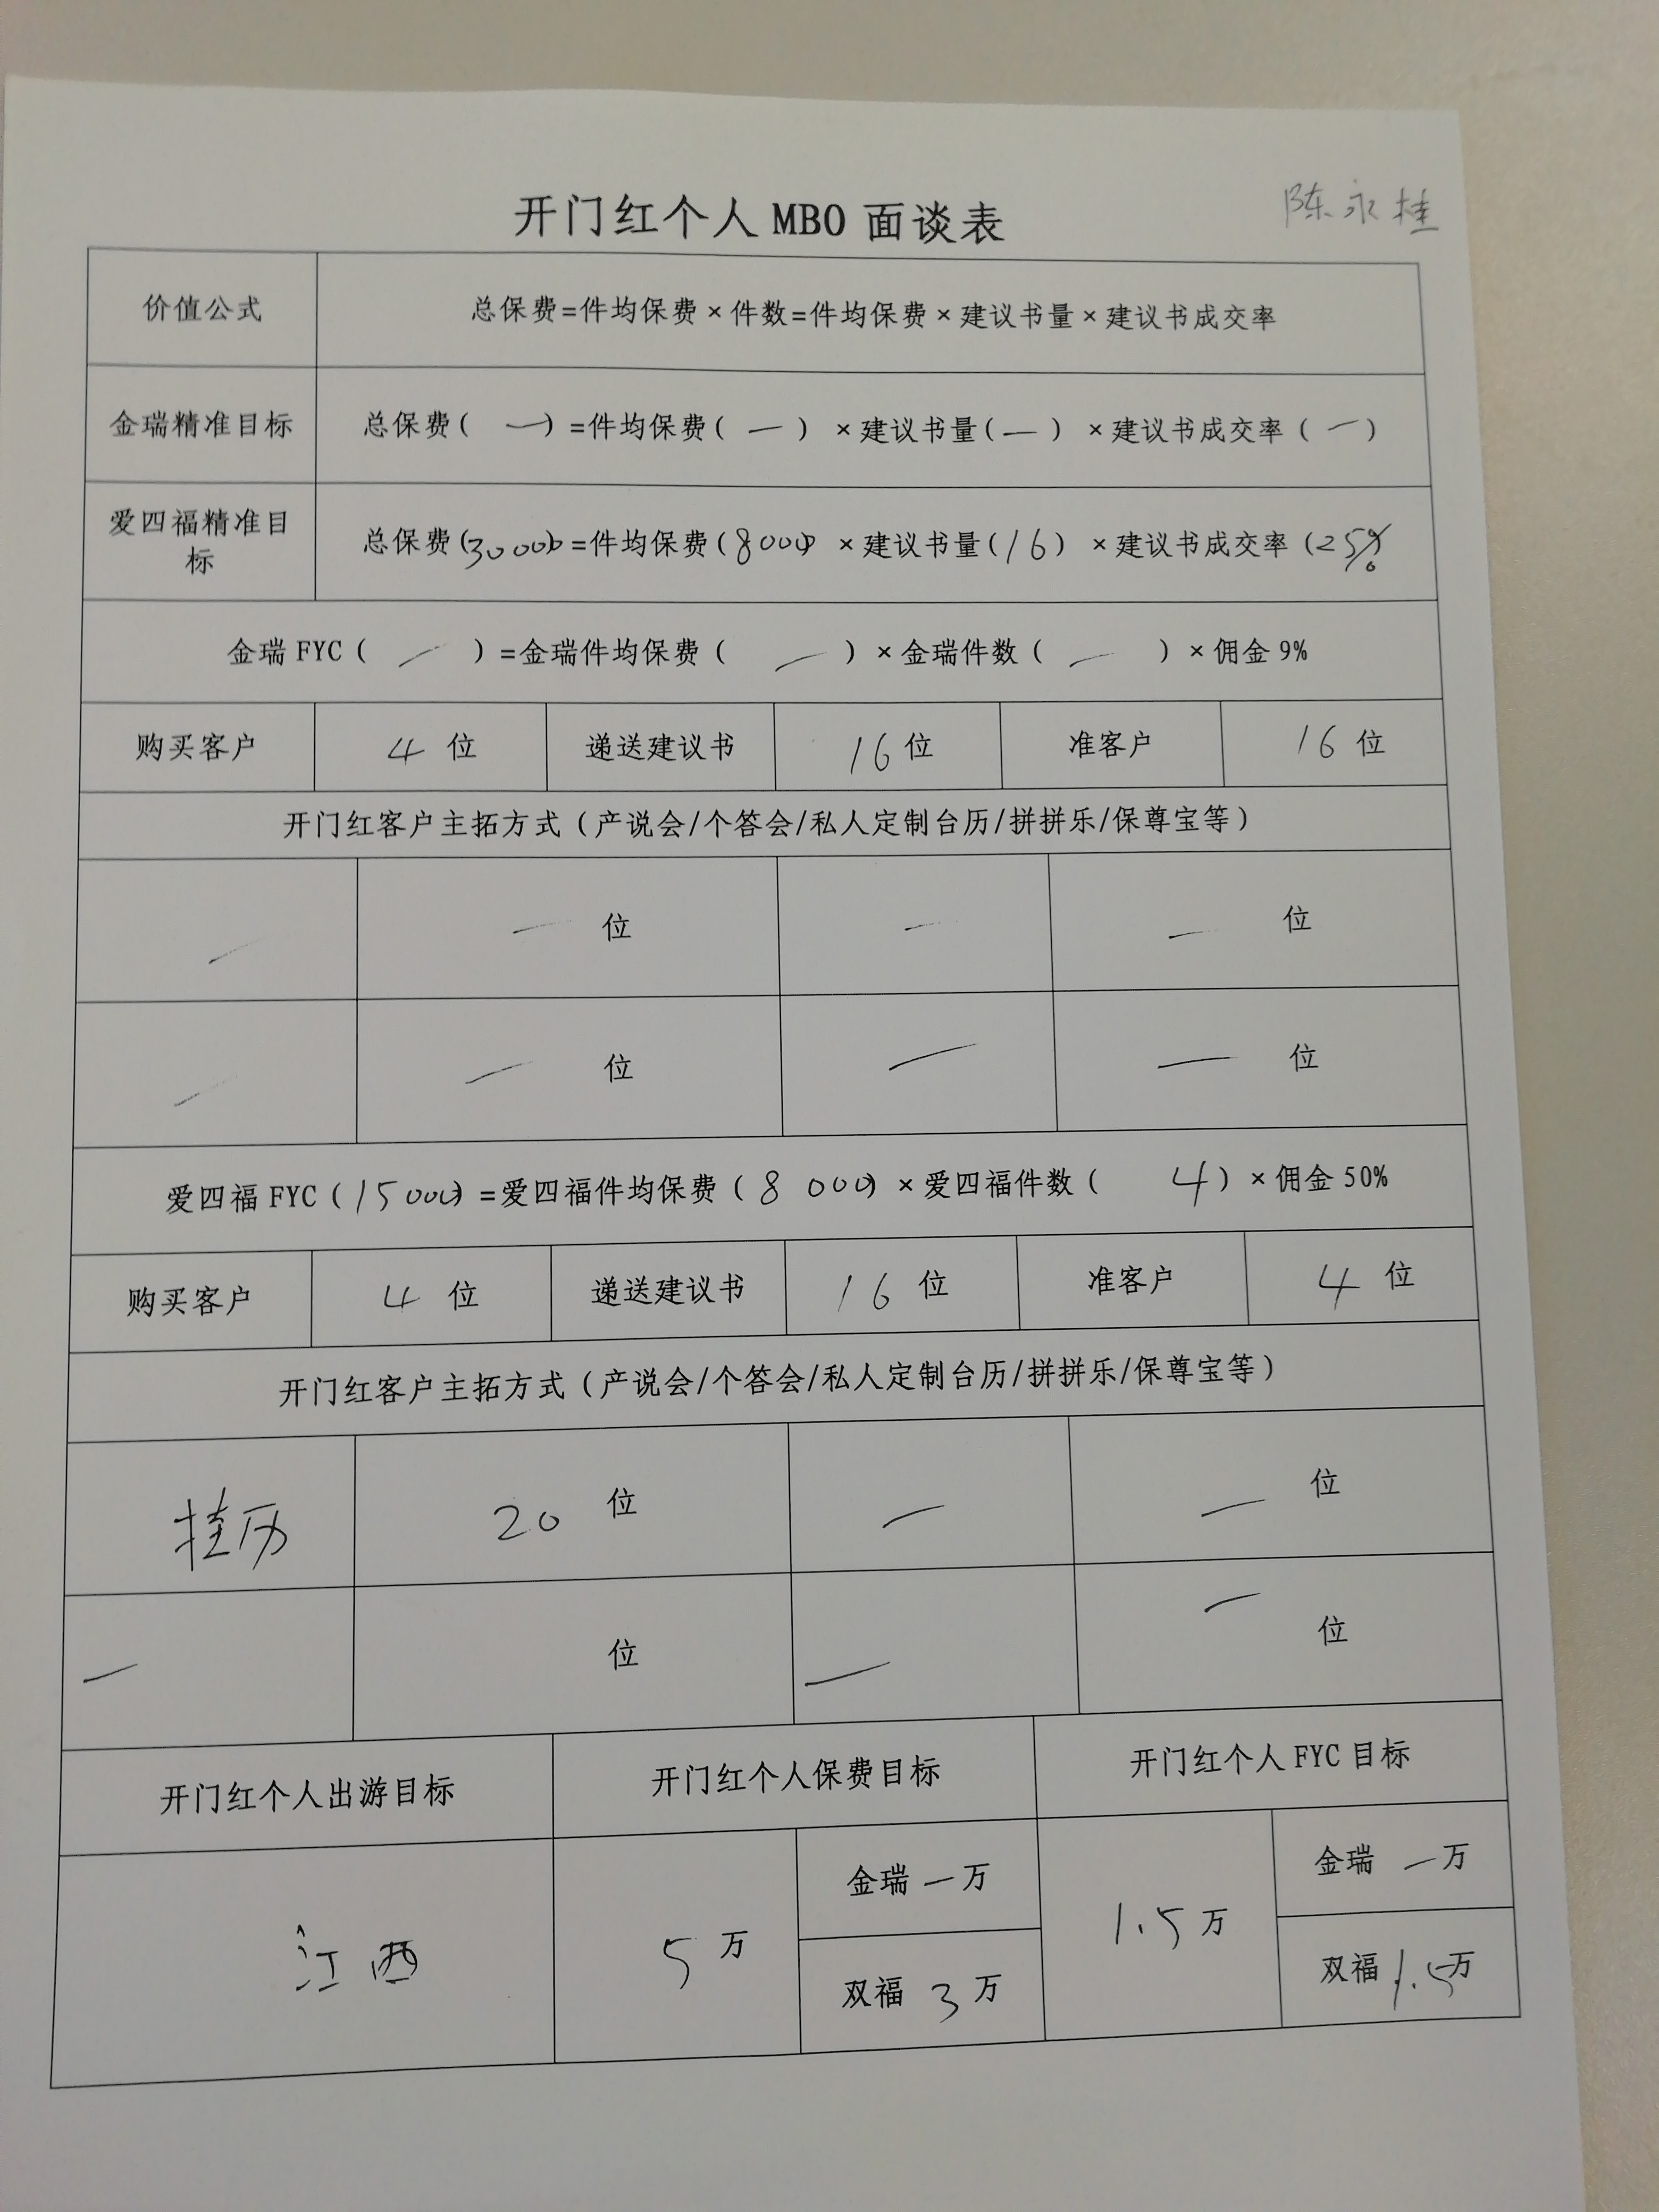 开门红个人 MBO 面谈表
陈永桂
价值公式
总保费=件均保费×件数=件均保费×建议书量×建议书成交率
金瑞精准目标
总保费( — )=件均保费( — ) ×建议书量( — ) ×建议书成交率( — )
爱四福精准目
标
总保费(30000)=件均保费(8000) ×建议书量(16) ×建议书成交率(25%
金瑞 FYC( — )=金瑞件均保费( — )×金瑞件数( — )×佣金 9%
购买客户 4 位 递送建议书 16 位 准客户 16 位
开门红客户主拓方式(产说会/个答会/私人定制台历/拼拼乐/保尊宝等)
— — 位 — — 位
— — 位 — — 位
爱四福 FYC(15000)=爱四福件均保费(8000)×爱四福件数( 4)×佣金 50%
购买客户 4 位 递送建议书 16 位 准客户 4 位
开门红客户主拓方式(产说会/个答会/私人定制台历/拼拼乐/保尊宝等)
挂历 20 位 — — 位
— 位 — — 位
开门红个人出游目标 开门红个人保费目标 开门红个人 FYC 目标
江西
5 万
金瑞 — 万
双福 3 万
1.5 万
金瑞 — 万
双福 1.5万